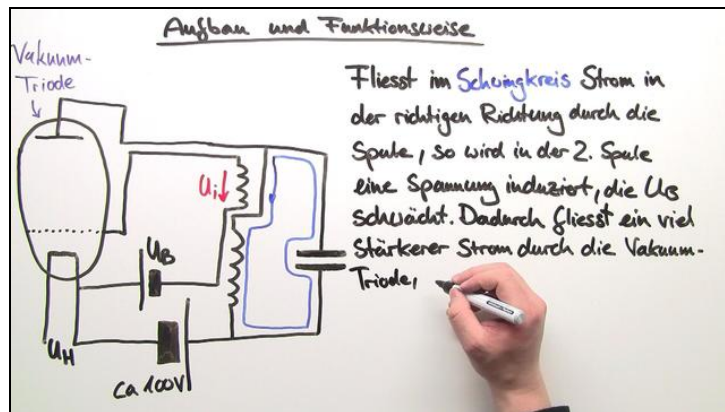 Aufbau und Funktionsweise
Vakuum-
Triode
Ui
UB
UH
ca 100V
Fliesst im Schwingkreis Strom in
der richtigen Richtung durch die
Spule, so wird in der 2. Spule
eine Spannung induziert, die UB
schwächt. Dadurch fliesst ein viel
stärkerer Strom durch die Vakuum-
Triode,